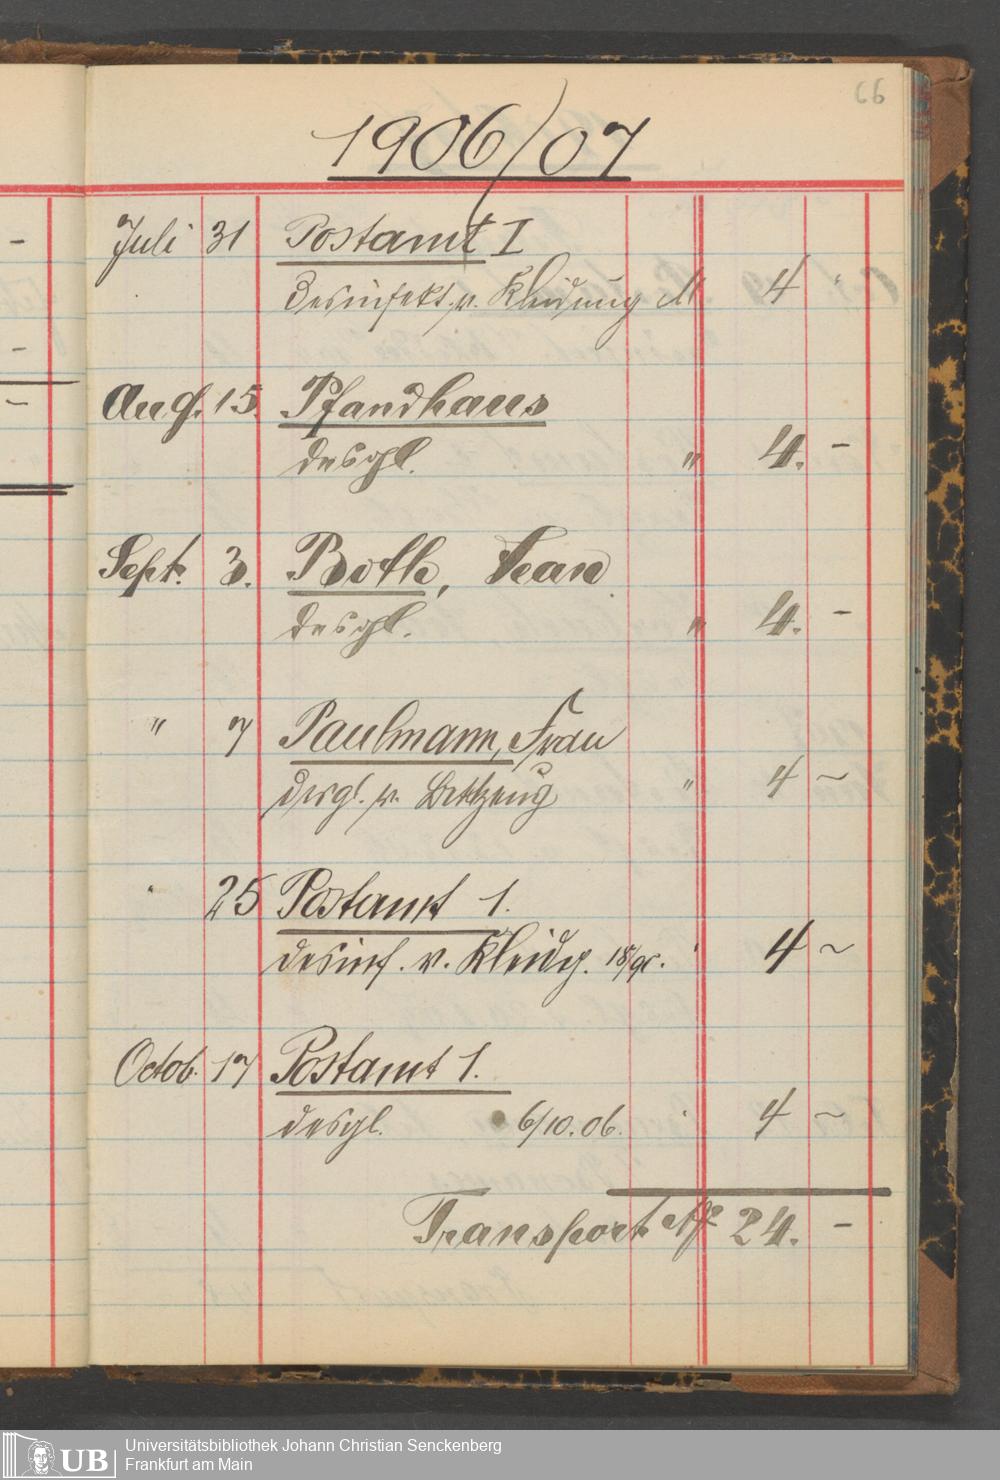 66
1906/07
Juli 31 Postamt I
Desinfekt. v. Kleidung M 4 "
Aug. 15. Pfandhaus
desgl. " 4. -
Sept. 3. Both, Jean
desgl. " 4. -
" 7 Paulmann, Frau
desgl. v. Bettzeug " 4 ~
" 25 Postamt 1.
desinf. v. Kleidg. " 4 ~
Octob. 17 Postamt 1.
desgl. 6/10.06. " 4 ~
Transport 24. -
UB
Universitätsbibliothek Johann Christian Senckenberg
Frankfurt am Main